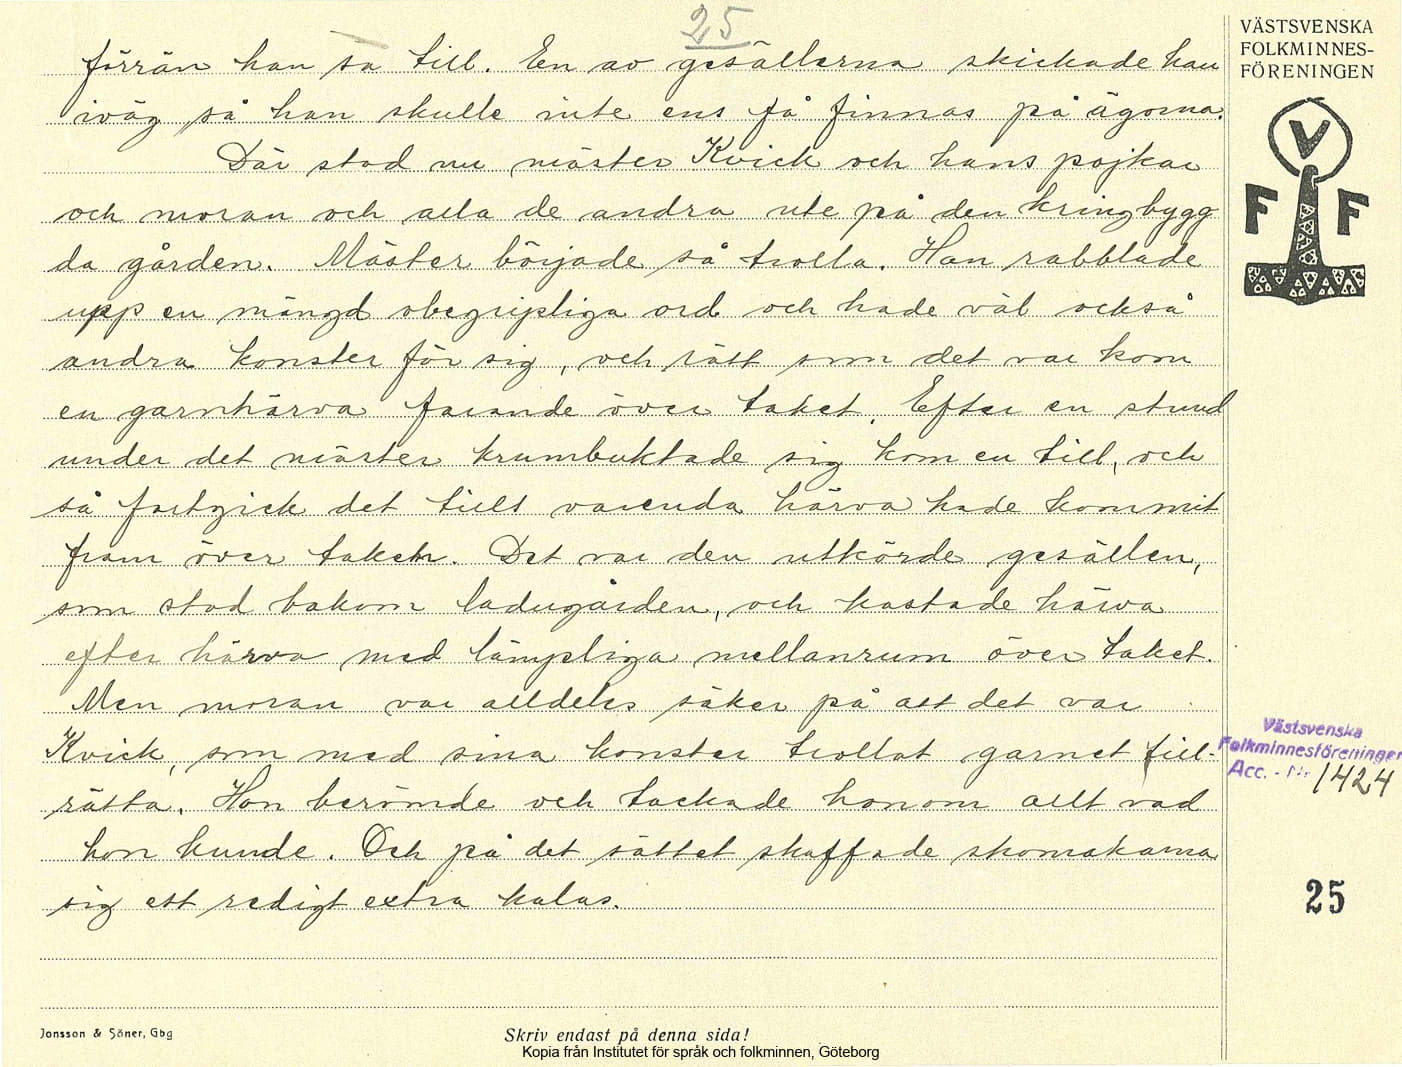 25
VÄSTSVENSKA
FOLKMINNES-
FÖRENINGEN
V
F F
förrän han sa till. En av gesällerna skickade han
iväg så han skulle inte ens få finnas på ägorna.
Där stod nu mäster Kvick och hans pojkar
och moran och alla de andra ute på den kringbygg
da gården. Mäster började så trolla. Han rabblade
upp en mängd obegripliga ord och hade väl också
andra konster för sig, och rätt som det var kom
en garnhärva farande över taket. Efter en stund
under det mäster krumbuktade sig kom en till, och
så fortgick det tills varenda härva hade kommit
fram över taken. Det var den utkörde gesällen,
som stod bakom ladugården, och kastade härva
efter härva med lämpliga mellanrum över taket.
Men moran var alldeles säker på att det var
Kvick, som med sina konster trollat garnet till-
rätta. Hon berömde och tackade honom allt vad
hon kunde. Och på det sättet skaffade skomakarna
sig ett redigt extra kalas.
Västsvenska
Folkminnesföreningen
Acc. - Nr 1424
25
Jonsson & Söner, Gbg
Skriv endast på denna sida!
Kopia från Institutet för språk och folkminnen, Göteborg